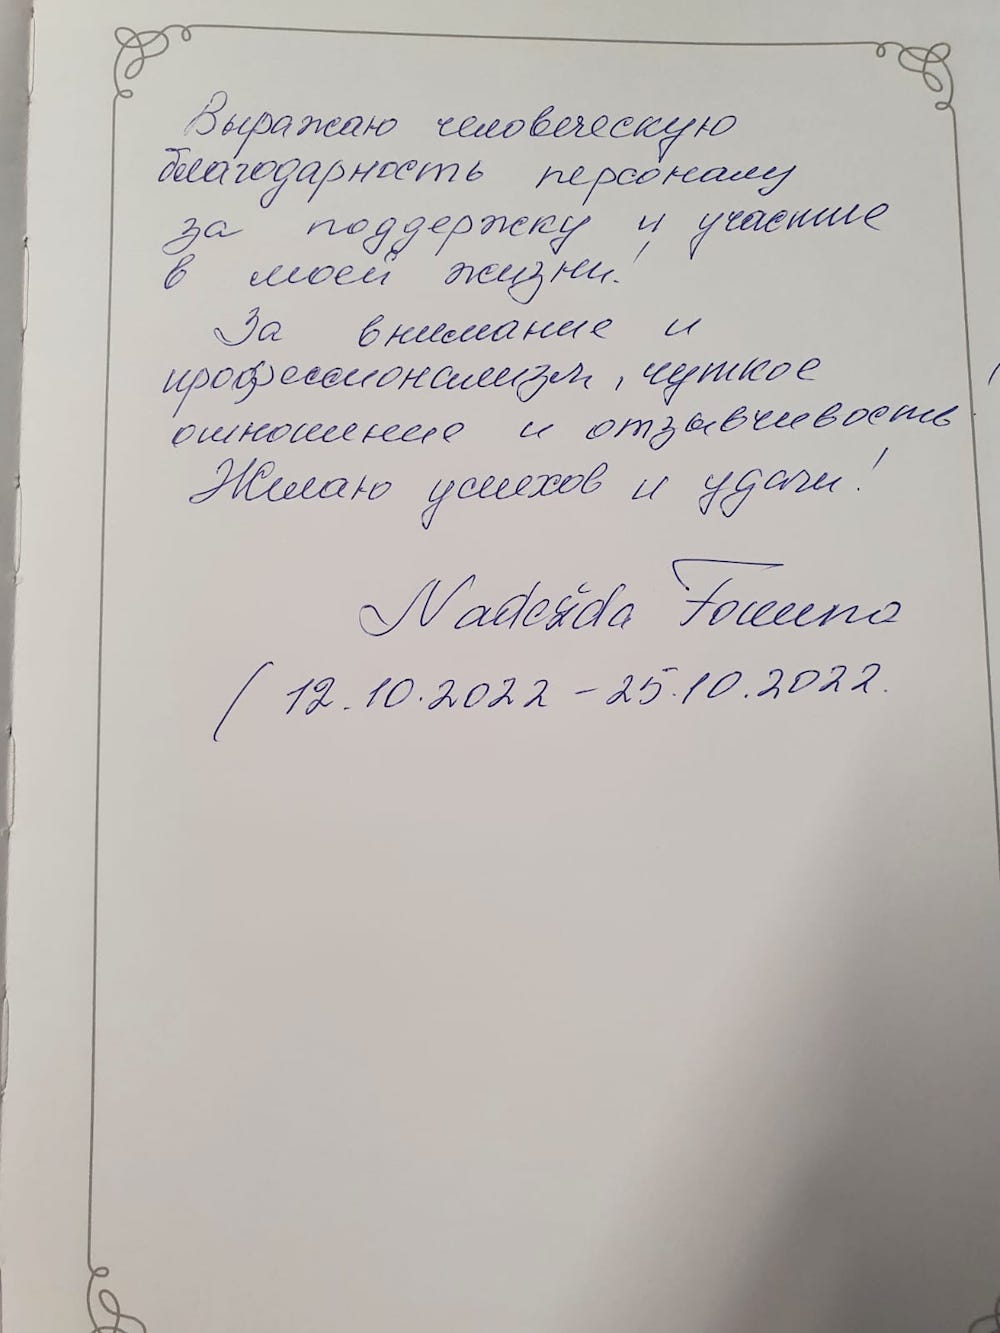 Выражаю человеческую
благодарность персоналу
за поддержку и участие
в моей жизни!
За внимание и
профессионализм, чуткое
отношение и отзывчивость
Желаю успехов и удачи!
Nadežda Fomina
(12.10.2022 – 25.10.2022.